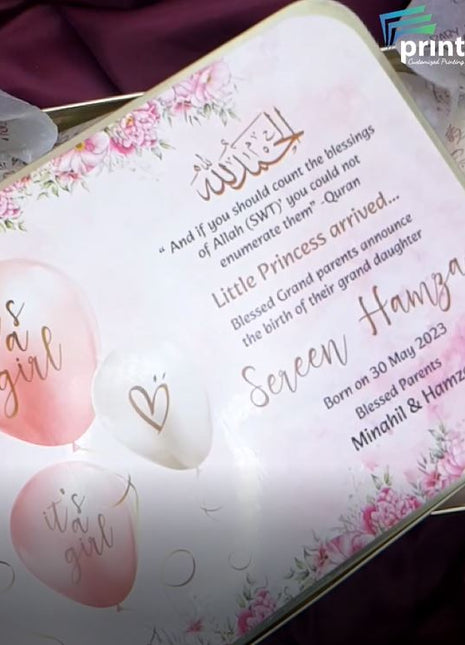 print
Customized Printing
الحمد لله
" And if you should count the blessings
of Allah (SWT)' you could not
enumerate them" -Quran
Little Princess arrived...
Blessed Grand parents announce
the birth of their grand daughter
Sereen Hamza
Born on 30 May 2023
Blessed Parents
Minahil & Hamza
it's
a
girl
it's
a
girl